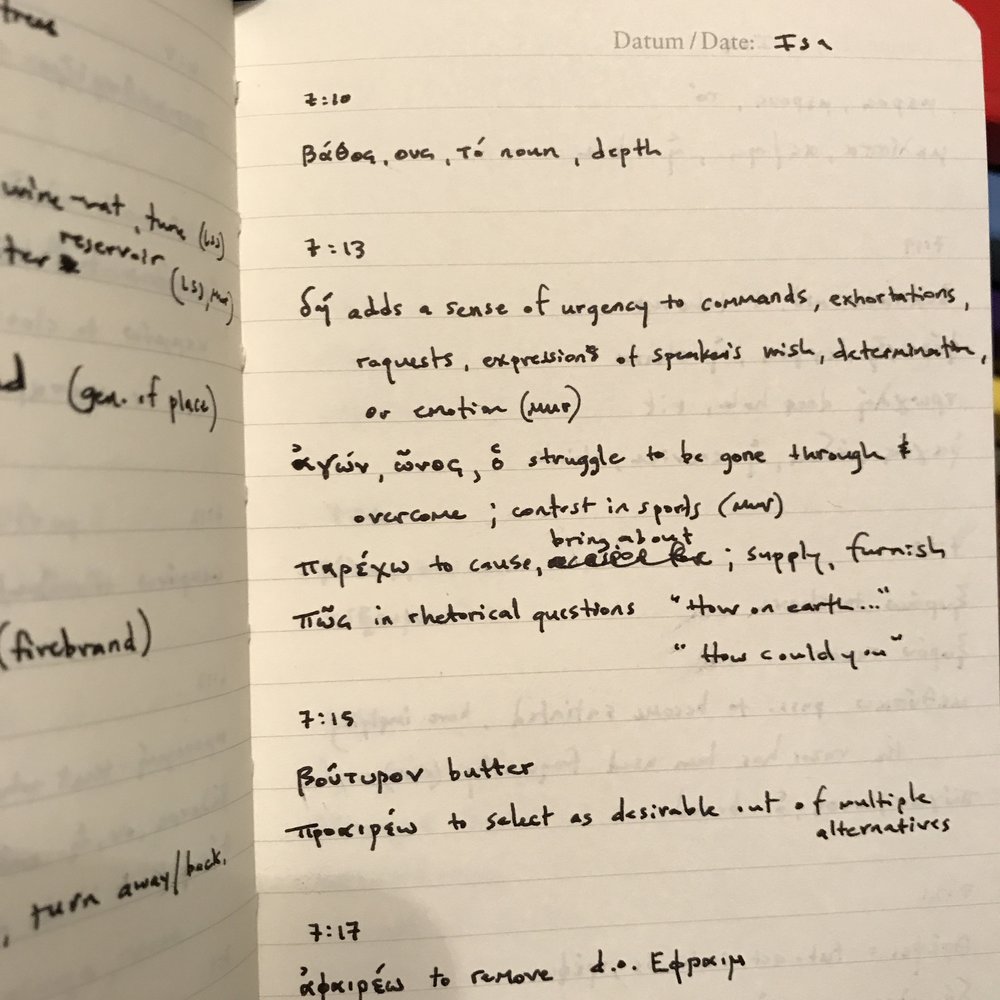 trees
wine-vat, turn (LSJ)
reservoir
(LSJ, Mur)
(gen. of place)
(firebrand)
, turn away/back,
Datum / Date: Isa
7:10
βάθος, ους, τό noun, depth
7:13
δή adds a sense of urgency to commands, exhortations,
requests, expressions of speaker's wish, determination,
or emotion (Mur)
ἀγών, ῶνος, ὁ struggle to be gone through &
overcome ; contest in sports (Mur)
bring about
παρέχω to cause, ; supply, furnish
πῶς in rhetorical questions "How on earth..."
"How could you"
7:15
βούτυρον butter
προαιρέω to select as desirable out of multiple
alternatives
7:17
ἀφαιρέω to remove d.o. Εφραιμ